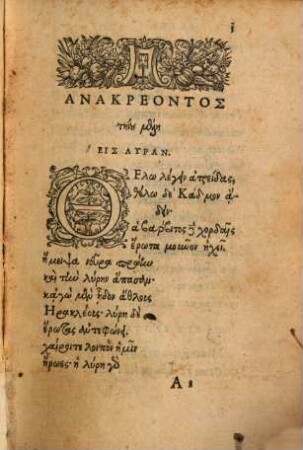 1
ΑΝΑΚΡΕΟΝΤΟΣ
τηΐου μέλη
ΕΙΣ ΛΥΡΑΝ.
ΘΕλω λέγειν ἀτρείδας,
θέλω δὲ Κάδμον ᾄ-
δειν·
ἁ βάρβιτος δὲ χορδαῖς
ἔρωτα μοῦνον ἠχεῖ.
ἤμειψα νεῦρα πρώην
καὶ τὴν λύρην ἅπασαν·
κἀγὼ μὲν ᾖδον ἄθλους
Ἡρακλέους· λύρη δὲ
ἔρωτας ἀντεφώνει.
χαίροιτε λοιπὸν ἡμῖν
ἥρωες· ἡ λύρη γὰρ
A